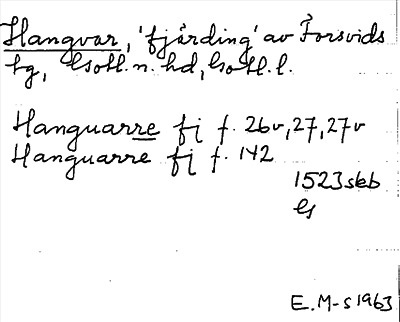 Hangvar, 'fjärding' av Forsvids
tg, Gotl. n. hd, Gotl. l.
Hanguarre fj f. 26v, 27, 27v
Hanguarre fj f. 142
1523 skb
G
E.M-s 1963